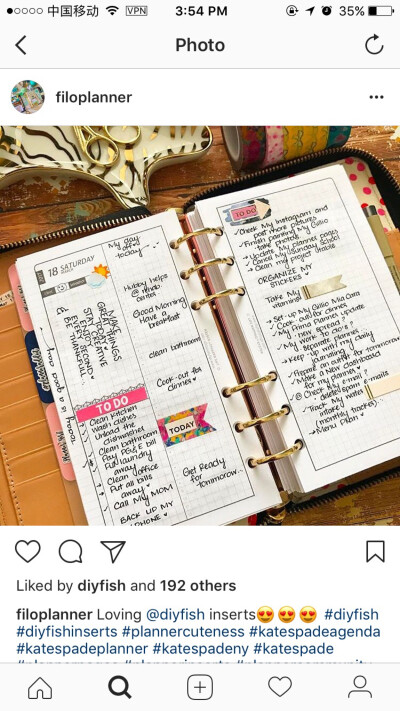 中国移动 VPN 3:54 PM 35%
Photo
filoplanner
18 SATURDAY
My day
off
today
Hubby helps
@ rehab
center
Good Morning
Have a
breakfast
clean bathroom
Cook-out for
dinner
MAKE THINGS
GREAT TODAY
STAY CREATIVE
BE THANKFUL
TO DO
Clean kitchen
Wash clishes
Unload the
dishwasher
Clean bathroom
Pay PG&E bill
Put laundry
away
Clean office
Put all bills
away
Call My MOM
BACK UP MY
PHONE
TODAY
Get Ready
for
tomorrow
TO DO
Check My Instagram and
post more pictures
Finish painting My Gillio
take photos
Update My planner pages
Cancel My Sunday school
Clean my project table
ORGANIZE MY
STICKERS
Take My
vitamins
Set-up My Gillio Mia Cara
Cook-out for dinner
My Prima Planner update
new spread?
My Work TO DO's
Keep-up with My daily
journaling
Prepare an outfit for tomorrow
Make A New dashboard
for my planner
@ Check My e-mail?
delete spam e-mails
Track My water
intake
(monthly tracker)
Menu Plan
Liked by diyfish and 192 others
filoplanner Loving @diyfish inserts😍😍😍 #diyfish
#diyfishinserts #plannercuteness #katespadeagenda
#katespadeplanner #katespadeny #katespade